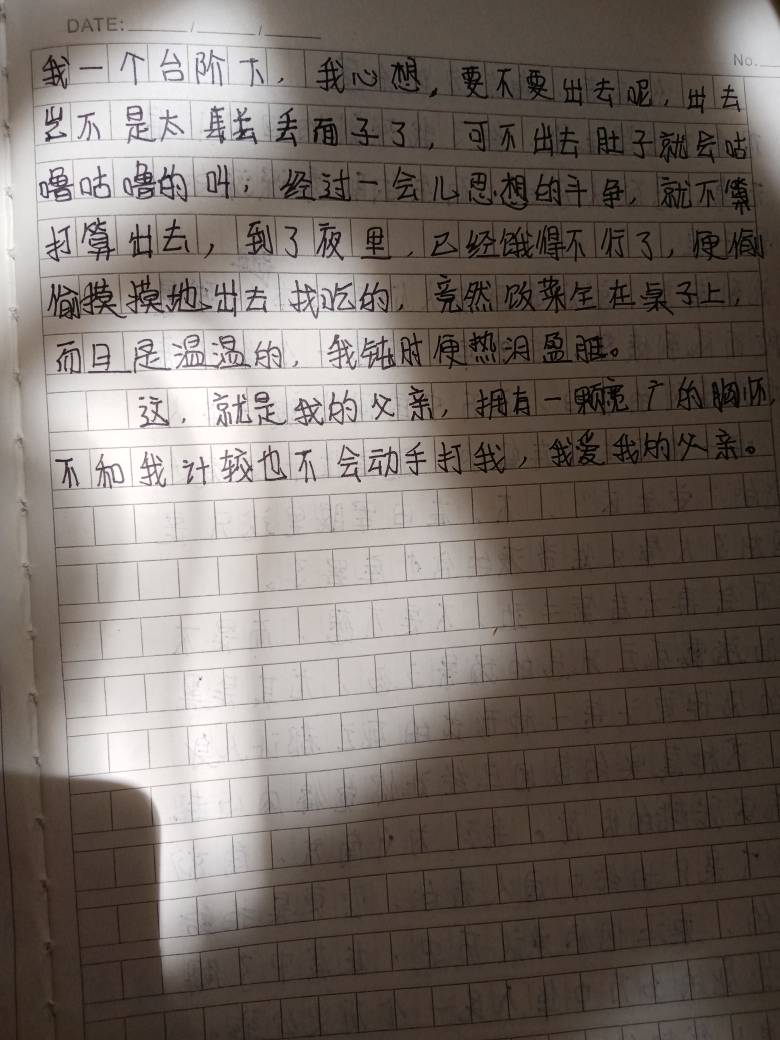 DATE: / /
No.
我一个台阶下，我心想，要不要出去呢，出去
岂不是太丢面子了，可不出去肚子就会咕
噜咕噜的叫；经过一会儿思想的斗争，就不
打算出去，到了夜里，已经饿得不行了，便偷
偷摸摸地出去找吃的，竟然饭菜全在桌子上，
而且是温温的，我钝时便热泪盈眶。
这，就是我的父亲，拥有一颗宽广的胸怀，
不和我计较也不会动手打我，我爱我的父亲。